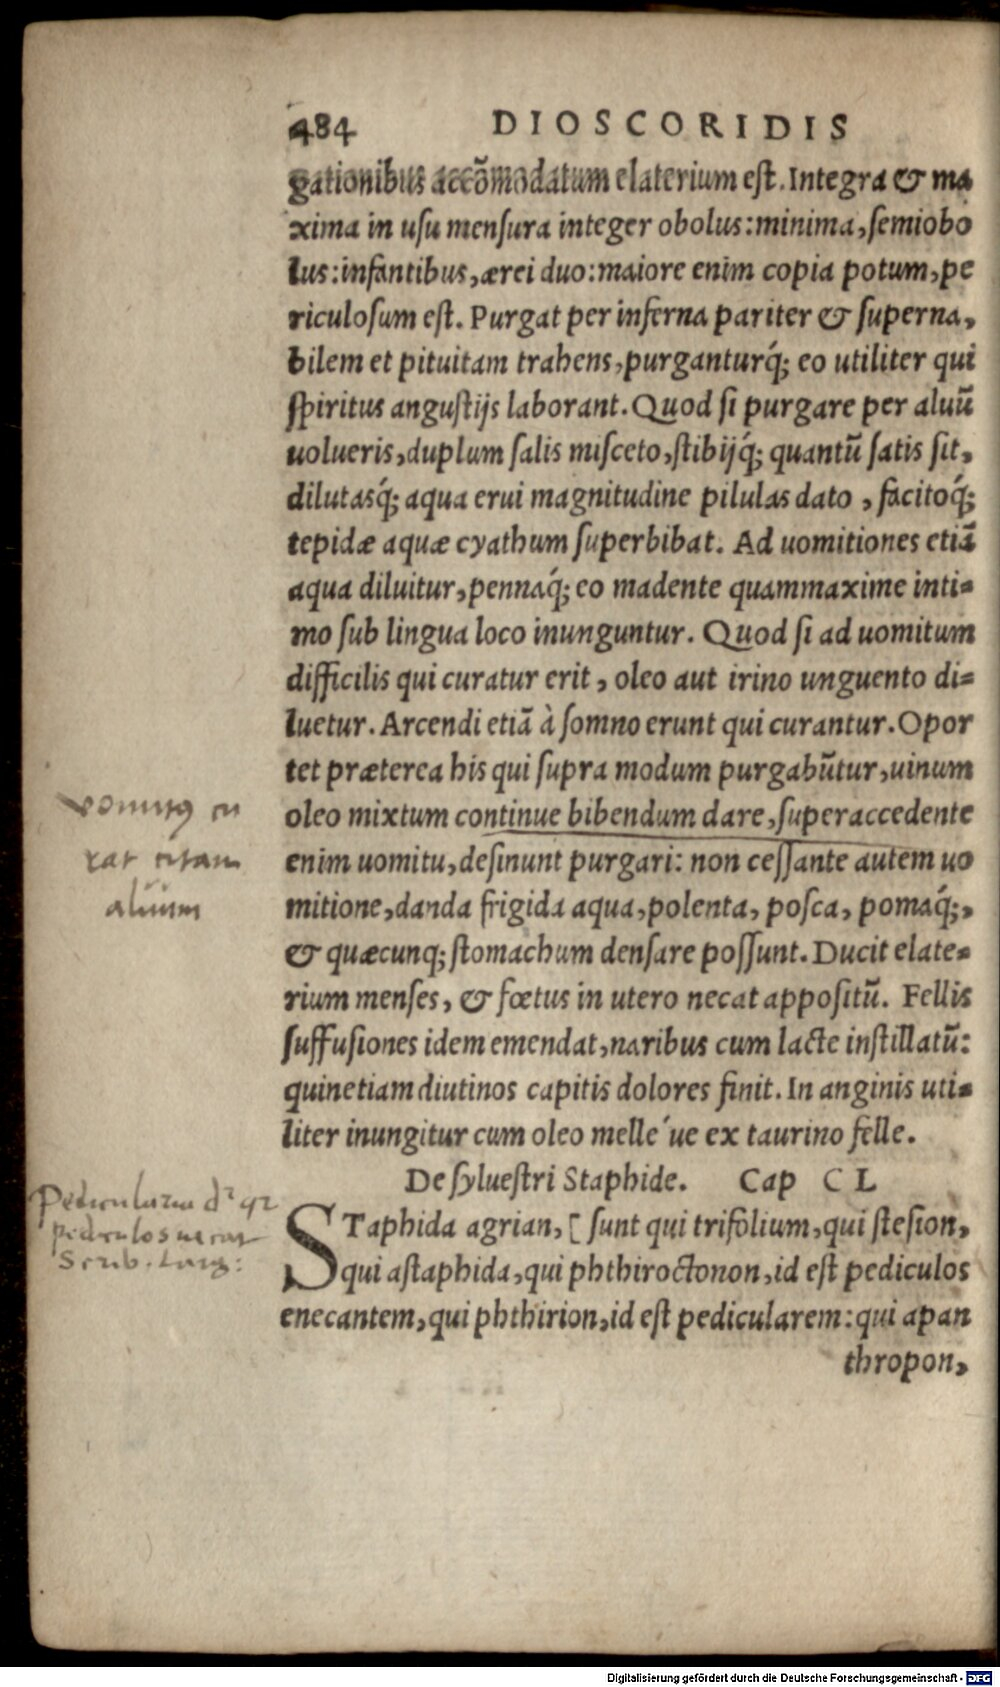 484 DIOSCORIDIS
gationibus accõmodatum elaterium est. Integra & ma
xima in usu mensura integer obolus: minima, semiobo
lus: infantibus, ærei duo: maiore enim copia potum, pe
riculosum est. Purgat per inferna pariter & superna,
bilem et pituitam trahens, purganturq́; eo utiliter qui
spiritus angustijs laborant. Quod si purgare per aluũ
uolueris, duplum salis misceto, stibijq́; quantũ satis sit,
dilutasq́; aqua erui magnitudine pilulas dato, facitoq́;
tepidæ aquæ cyathum superbibat. Ad uomitiones etiã
aqua diluitur, pennaq́; eo madente quammaxime inti=
mo sub lingua loco inunguntur. Quod si ad uomitum
difficilis qui curatur erit, oleo aut irino unguento di=
luetur. Arcendi etiã à somno erunt qui curantur. Opor
tet præterea his qui supra modum purgabũtur, uinum
oleo mixtum continue bibendum dare, superaccedente
enim uomitu, desinunt purgari: non cessante autem uo
mitione, danda frigida aqua, polenta, posca, pomaq́;,
& quæcunq; stomachum densare possunt. Ducit elate=
rium menses, & fœtus in utero necat appositũ. Fellis
suffusiones idem emendat, naribus cum lacte instillatũ:
quinetiam diutinos capitis dolores finit. In anginis uti=
liter inungitur cum oleo melle´ue ex taurino felle.
De syluestri Staphide. Cap CL
STaphida agrian, [ sunt qui trifolium, qui stesion,
qui astaphida, qui phthiroctonon, id est pediculos
enecantem, qui phthirion, id est pedicularem: qui apan
thropon,
vomitus cu
rat citam
aluum
Pedicularia
pediculos necat
Scrib. Larg:
Digitalisierung gefördert durch die Deutsche Forschungsgemeinschaft - DFG